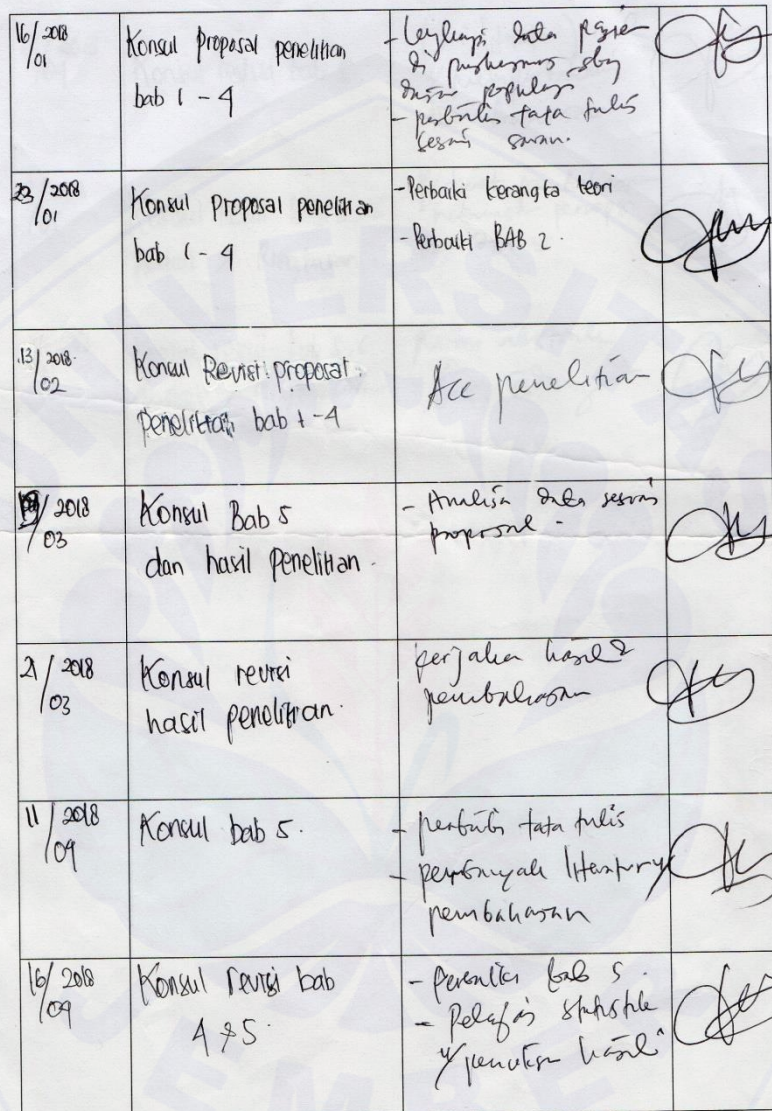 16/01 2018
Konsul proposal penelitian
bab 1 - 4
- Lengkapi data pasien
di puskesmas sbg
dasar populasi
- perbaiki tata tulis
sesuai saran.
23/01 2018
Konsul proposal penelitian
bab 1 - 4
- Perbaiki kerangka teori
- Perbaiki BAB 2.
13/02 2018
Konsul Revisi proposal
penelitian bab 1 - 4
Acc penelitian
/03 2018
Konsul Bab 5
dan hasil penelitian.
- Analisa data sesuai
proposal -
21/03 2018
Konsul revisi
hasil penelitian.
perjelas hasil2
pembahasan
11/04 2018
Konsul bab 5.
- perbaiki tata tulis
- perbanyak literatur
pembahasan
16/04 2018
Konsul revisi bab
4 & 5.
- bab 5.
- Pelajari statistik
u/ penulisan hasil
UNIVERSITAS
JEMBER